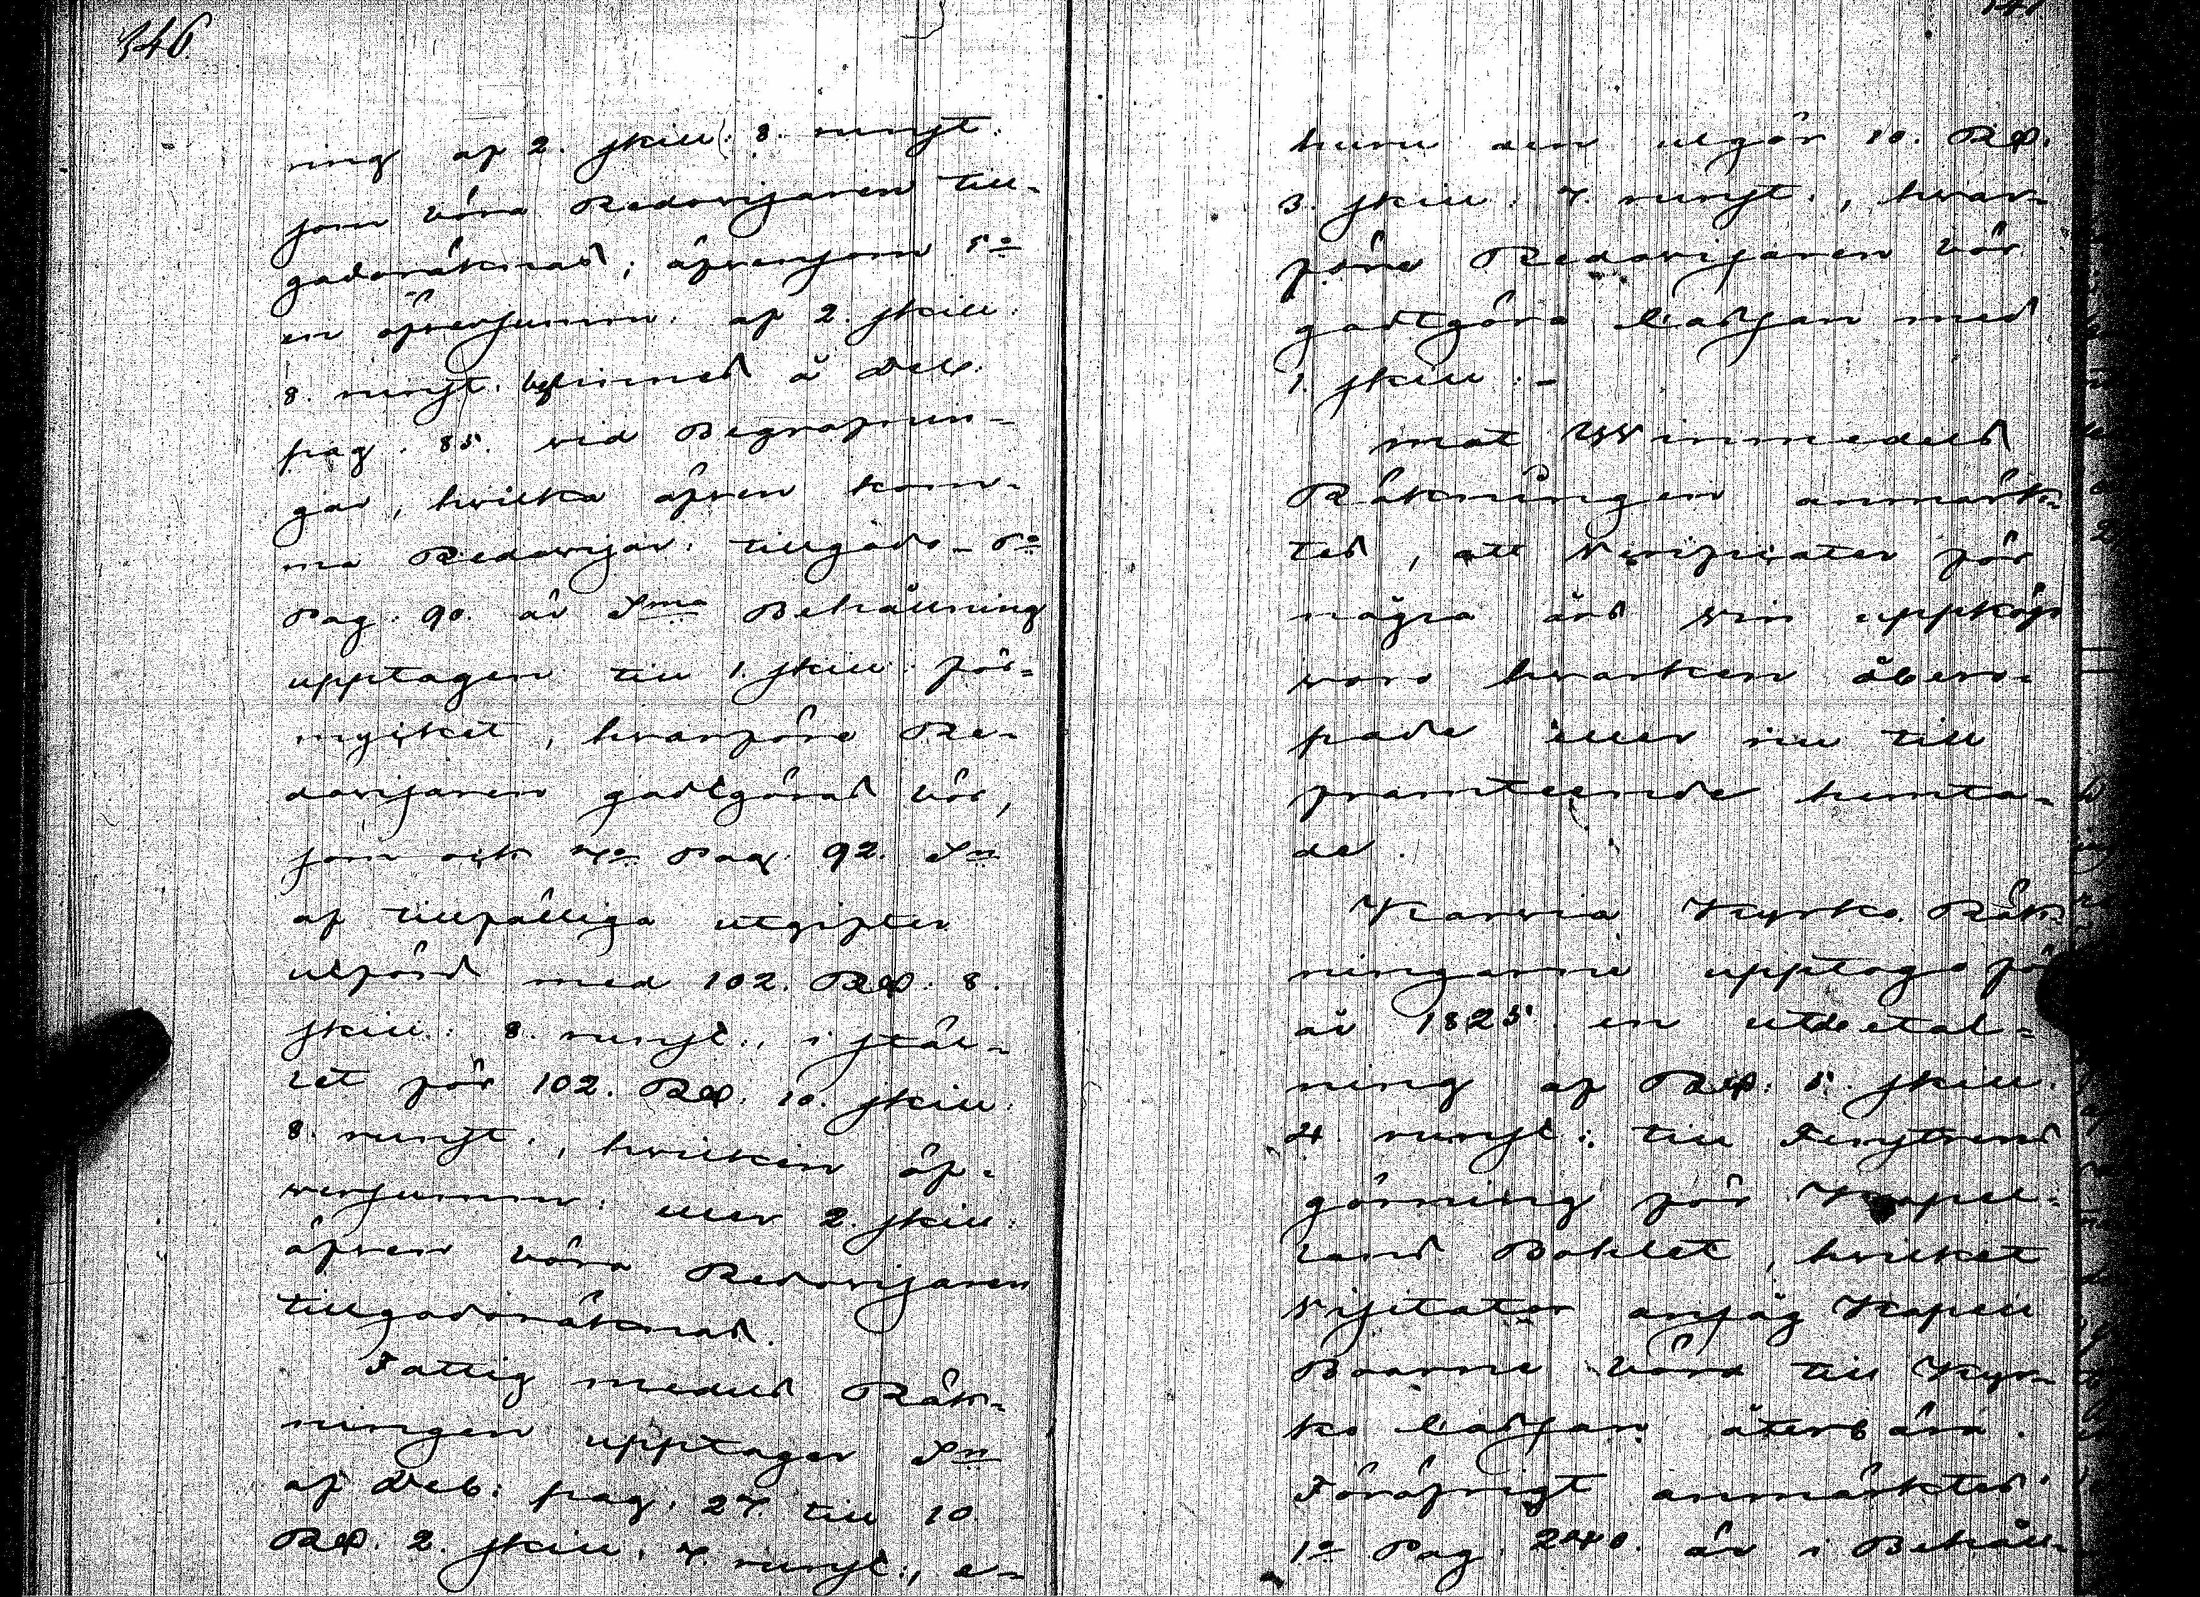 346.
ning af 2. skill: 8. runst.
som böra Redovisaren till-
godoräknas; äfvensom 5o
en öfversumm: af 2. skill:
8. runst. befinnes å Deb.
pag. 85. vid Begrafnin-
gar, hvilka äfven kom-
ma Redovisar: tillgodo- 6o
Pag. 90. är Sma Behållning
upptagen till 1. skill: för-
mycket, hvarföre Re-
dovisaren godtgöras bör,
som ock 7o Pag. 92. Sn
af tillfälliga utgifter
utförd med 102. Rd. 8.
skill: 8. runst., i stäl-
let för 102. Rd. 10. skill:
8. runst., hvilken öf-
versumm: eller 2. skill:
äfven böra Redovisaren
tillgodoräknas.
Fattig medels Räk-
ningen upptager Sn
af Deb: pag. 27. till 10
Rd. 2. skill. 7. runst:, e-
huru den utgör 10. Rd.
3. skill: 7. runst., hvar-
före Redovisaren bör
godtgöra Cassan med
1. skill: -
mot Winmedels
Räkningen anmärk-
tes, att Verificater för
några års vin uppköp
voro hvarken åbero-
pade eller nu till
framteende hemta-
de.
Karvia Kyrko Räk-
ningarne upptogo för
år 1825 en utbetal-
ning af Rd: 5. skill.
4. runst: till Fensters
görning för Kapel-
lans Bohlet, hvilket
Visitator ansåg Kapell
Boarne böra till Kyr-
ko Cassan återbära.
Föröfrigt anmärktes.
1o Pag. 240. är i Behåll-